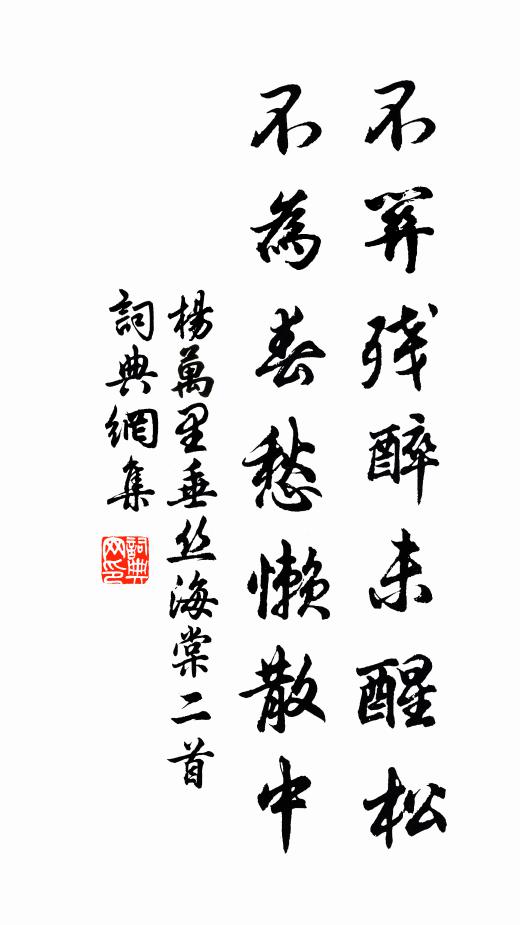 不关残醉未醒松
不為春愁懒散中
楊萬里垂丝海棠二首
詞典網集
詞典网印